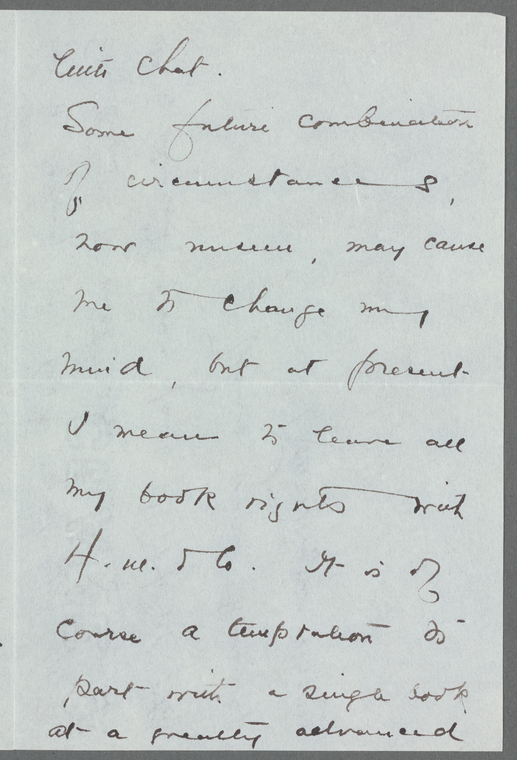 with that.
Some future combination
of circumstances,
now unseen, may cause
me to change my
mind, but at present
I mean to leave all
my book rights with
H. M. & Co. It is of
course a temptation to
part with a single book
at a greatly advanced